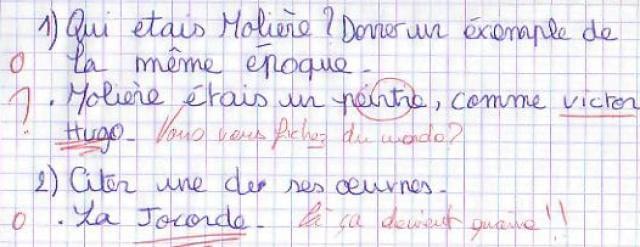 1) Qui etais Molière ? Donner un éxemple de
0 la même époque.
? . Molière étais un peintre, comme victor
Hugo. Vous vous fichez du monde?
2) Citer une des ses oeuvres.
0 . La Joconde. là ça devient grave !!